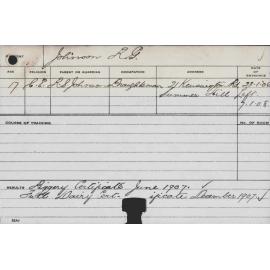 STUDENT
Johnson L.G.
AGE RELIGION PARENT OR GUARDIAN OCCUPATION ADDRESS DATE OF ENTRANCE
17 C.E. L.S. Johnson Draughtsman 21 Kensington Rd
Summer Hill Left
7.1.08
COURSE OF TRAINING. No. OF ROOM
RESULTS Piggery Certificate June 1907.
Dairy Certificate December 1907.